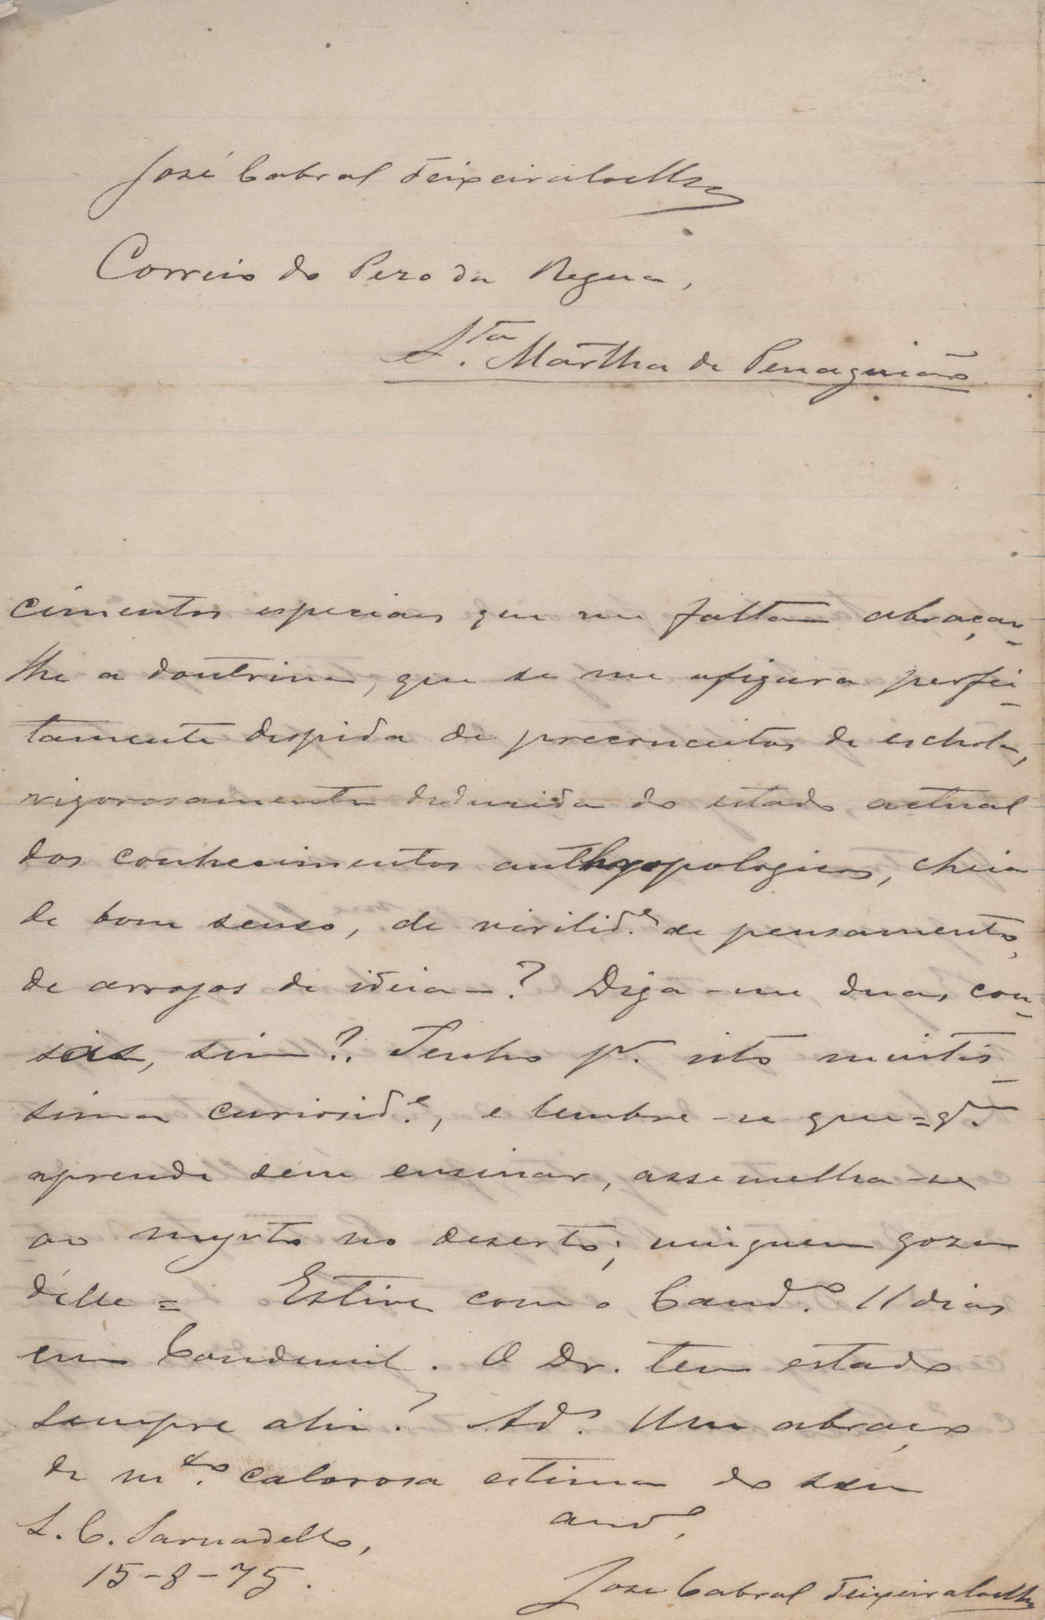 José Cabral Teixeira Coelho
Correio do Pezo da Regua,
S.ta Martha de Penaguião
cimentos especiaes que me faltam abraçar-
lhe a doutrina, que se me afigura perfei-
tamente despida de preconceitos de eschola,
rigorosamente deduzida do estado actual
dos conhecimentos anthropologicos, cheia
de bom senso, de virilid.e de pensamento,
de arrojos de ideia-? Diga-me duas cou-
sas, sim?. Tenho p.r isto muitis-
sima curiosid.e, e lembre-se que=q.m
aprende sem ensinar, assemelha-se
ao myrto no deserto; ninguem goza
d'elle= Estive com o Cand.o 11 dias
em Candemil. O Dr. tem estado
sempre ahi? Ad.s Um abraço
de m.to calorosa estima do seu
am.o
S. C. Sarnadello,
15-8-75.
José Cabral Teixeira Coelho